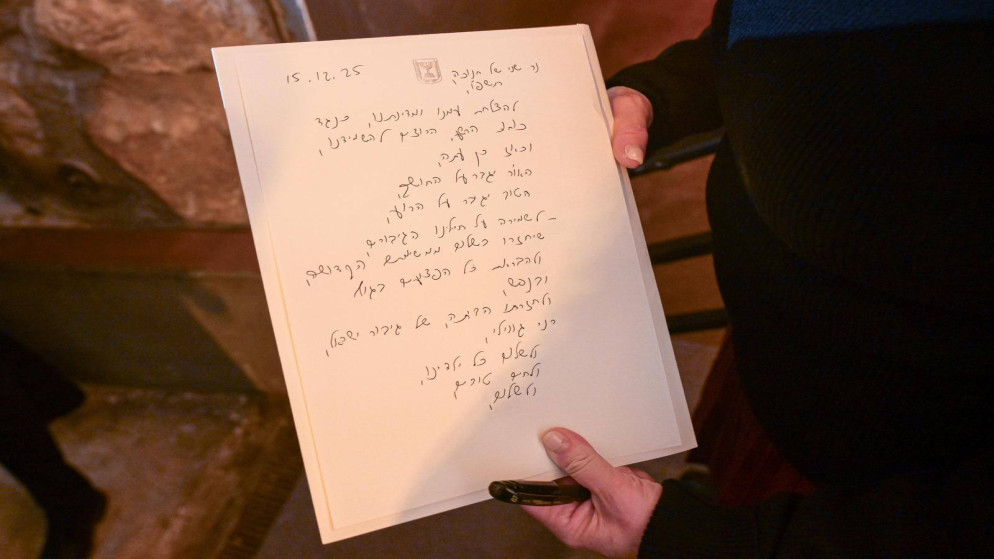 15.12.25
נר שני של חנוכה
תשפ"ו,
להצלחת עמנו ומדינתנו, כנגד
כוחות הרשע, הרוצים להשמידנו,
וכאז כן עתה,
האור יגבר על החושך,
הטוב יגבר על הרוע,
– לשמירה על חיילינו הגיבורים,
שיחזרו בשלום ממשימתם הקדושה,
ולהבראת כל הפצועים בגוף
ובנפש,
ולחזרתו הביתה, של גיבור ישראל,
רני גואילי,
ולשלום כל ילדינו,
ולחיים טובים
ולשלום,